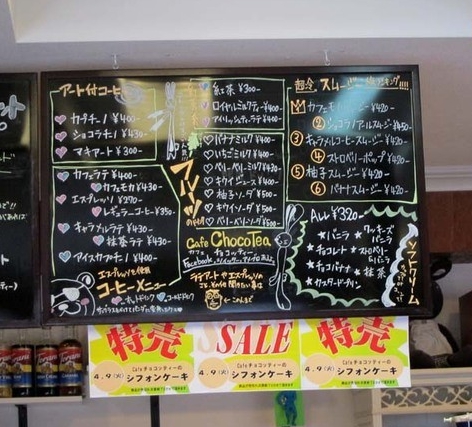 アート付コーヒー
カプチーノ ¥400-
ショコラチーノ ¥430-
マキアート ¥300-
カフェラテ ¥400-
カフェモカ ¥430-
エスプレッソ ¥270-
レギュラーコーヒー ¥350-
キャラメルラテ ¥430-
抹茶ラテ ¥430-
アイスカプチーノ ¥400-
エスプレッソを使用
コーヒーメニュー
紅茶 ¥300-
ロイヤルミルクティー ¥400-
フルーツ
バナナミルク ¥400-
いちごミルク ¥400-
ベリーベリーミルク ¥430-
キウイジュース ¥400-
柚子ソーダ ¥400-
キウイソーダ ¥400-
ベリーベリーソーダ ¥430-
Cafe ChocoTea
カフェ チョコッティー
ラテアート
超冷 スムージー 人気ランキング!!!!
② ショコラノアールスムージー ¥450-
③ キャラメルコーヒースムージー ¥420-
④ ストロベリーポップ ¥420-
⑤ 柚子スムージー ¥420-
⑥ バナナスムージー ¥420-
ALL ¥320-
ソフトクリーム
★バニラ
★チョコレート
★チョコバナナ
★カスタードプリン
★クッキーズバニラ
★ストロベリーバニラ
★抹茶
特売
4.9(火)
Cafeチョコッティーの
シフォンケーキ
SALE
4.9(火)
Cafeチョコッティーの
シフォンケーキ
特売
4.9(火)
Cafeチョコッティーの
シフォンケーキ
Torani
Torani
Torani